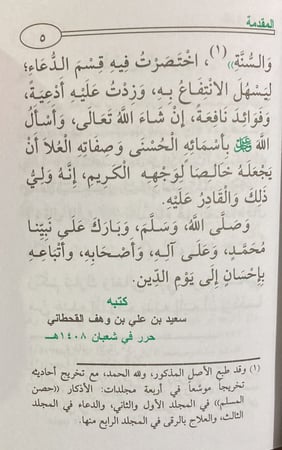 المقدمة
٥
وَالسُّنَّةِ»(١)، اخْتَصَرْتُ فِيهِ قِسْمَ الدُّعَاءِ؛
لِيَسْهُلَ الانْتِفَاعُ بِهِ، وَزِدْتُ عَلَيْهِ أَدْعِيَةً،
وَفَوَائِدَ نَافِعَةً، إِنْ شَاءَ اللَّهُ تَعَالَى، وَأَسْأَلُ
اللَّهَ ﷻ بِأَسْمَائِهِ الْحُسْنَى وَصِفَاتِهِ الْعُلَا أَنْ
يَجْعَلَهُ خَالِصًا لِوَجْهِهِ الْكَرِيمِ، إِنَّهُ وَلِيُّ
ذَلِكَ وَالْقَادِرُ عَلَيْهِ.
وَصَلَّى اللَّهُ، وَسَلَّمَ، وَبَارَكَ عَلَى نَبِيِّنَا
مُحَمَّدٍ، وَعَلَى آلِهِ، وَأَصْحَابِهِ، وَأَتْبَاعِهِ
بِإِحْسَانٍ إِلَى يَوْمِ الدِّينِ.
كتبه
سعيد بن علي بن وهف القحطاني
حرر في شعبان ١٤٠٨هـ
(١) وقد طبع الأصل المذكور، ولله الحمد، مع تخريج أحاديثه
تخريجاً موسَّعاً في أربعة مجلدات: الأذكار «حصن
المسلم» في المجلد الأول والثاني، والدعاء في المجلد
الثالث، والعلاج بالرقى في المجلد الرابع منها.